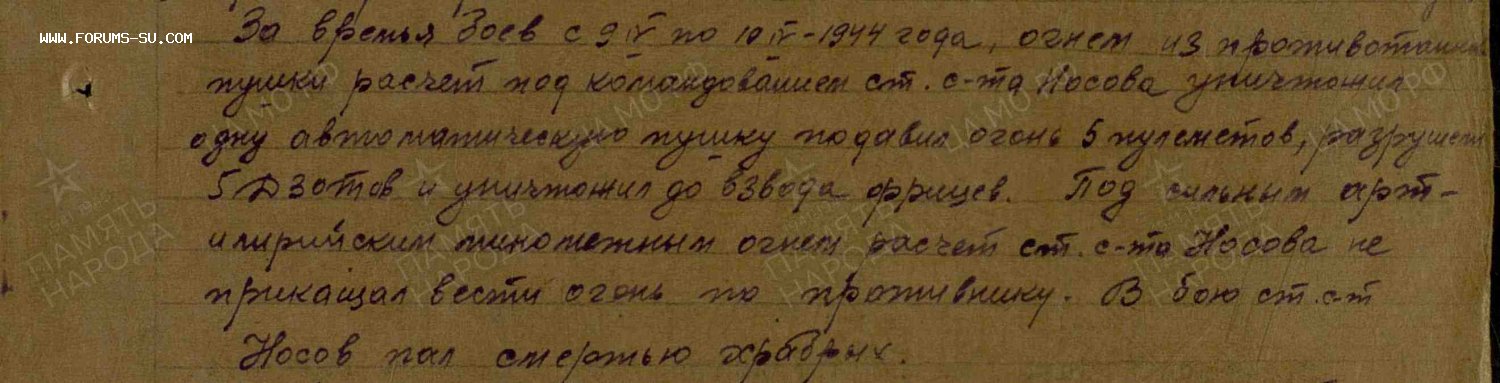 За времья боев с 9 IV по 10 IV-1944 года, огнем из противотанк
www.forums-su.com
пушки расчет под командованием ст. с-та Носова уничтожил
одну автоматическую пушку подавил огонь 5 пулеметов, разрушил
5 Дзотов и уничтожил до взвода фрицев. Под сильным арт-
илирийским минометным огнем расчет ст. с-та Носова не
прикащал вести огонь по противнику. В бою ст. с-т
Носов пал смертью храбрых.
ПАМЯТЬ НАРОДА
ЦАМО.РФ